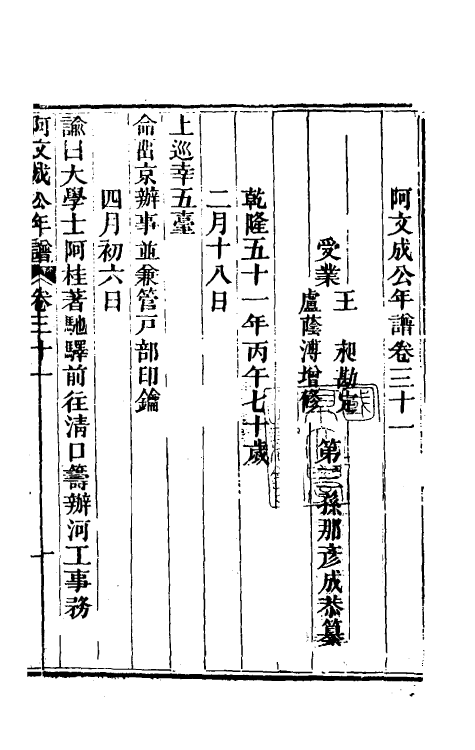 阿文成公年譜卷三十一
第三孫那彥成恭纂
受業
王 昶勘定
盧蔭溥增修
乾隆五十一年丙午七十歲
二月十八日
上巡幸五臺
命留京辦事並兼管戶部印鑰
四月初六日
諭曰大學士阿桂著馳驛前往清口籌辦河工事務
阿文成公年譜 卷三十一 一